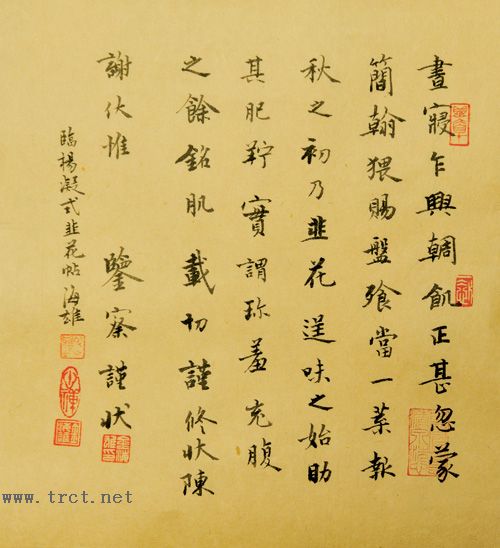 晝寢乍興輖飢正甚忽蒙
簡翰猥賜盤飱當一葉報
秋之初乃韭花逞味之始助
其肥羜實謂珎羞充腹
之餘銘肌載切謹修狀陳
謝伏惟 鑒察謹狀
臨楊凝式韭花帖 海雄
www.trct.net